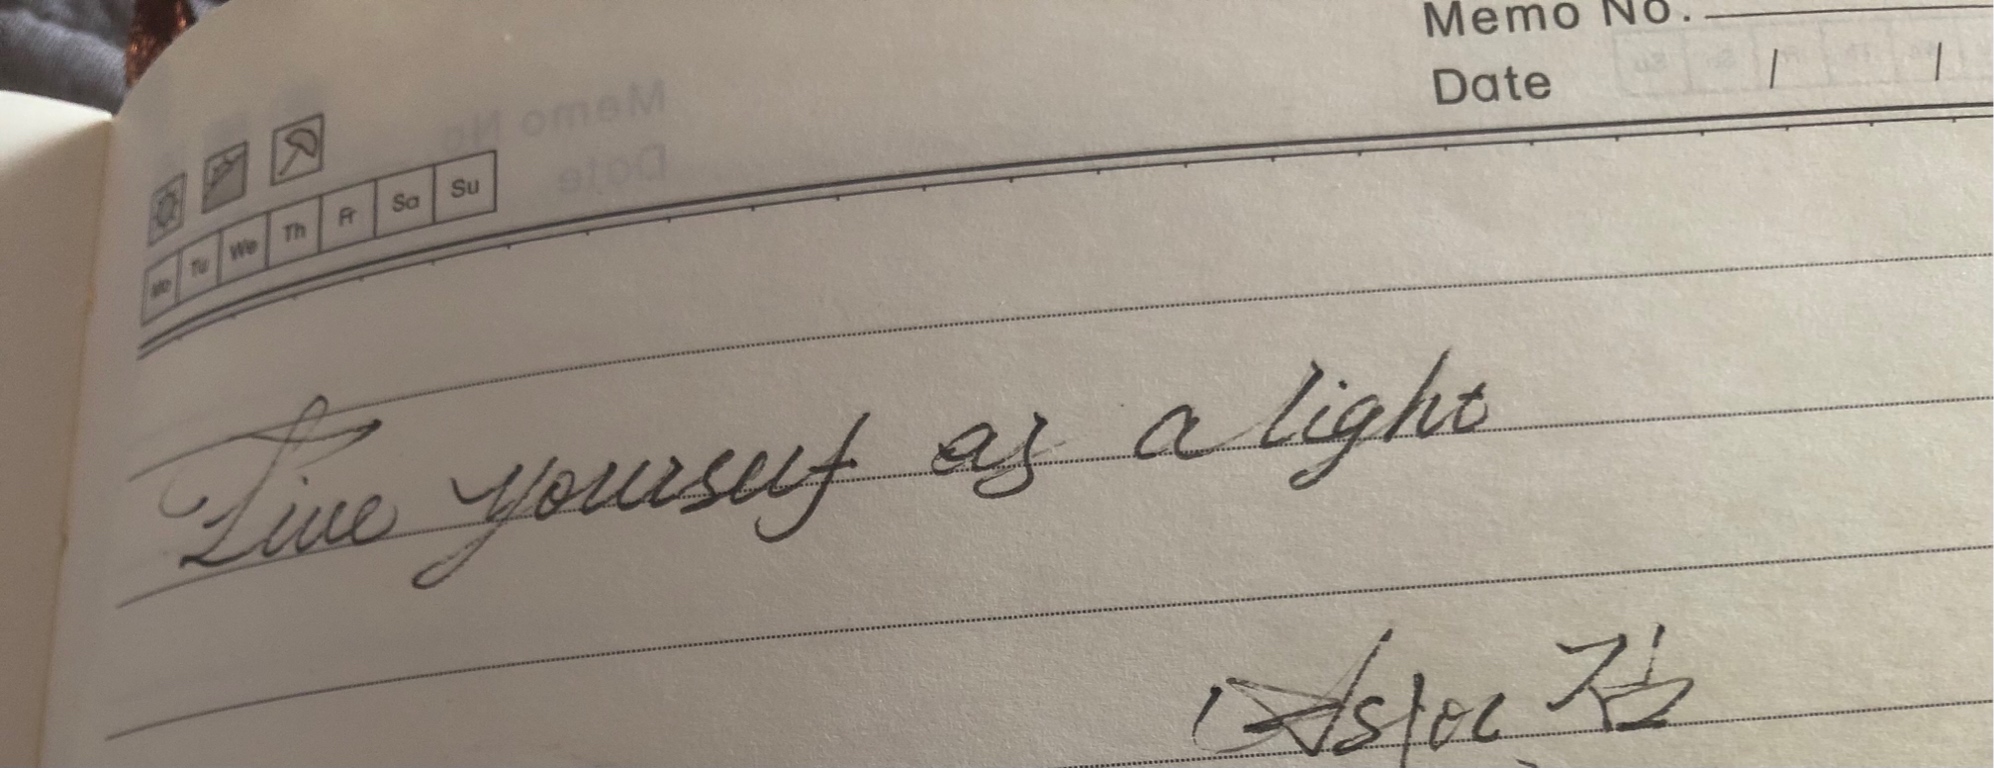 Memo No.
Date / /
Mo Tu We Th Fr Sa Su
Live yourself as a light